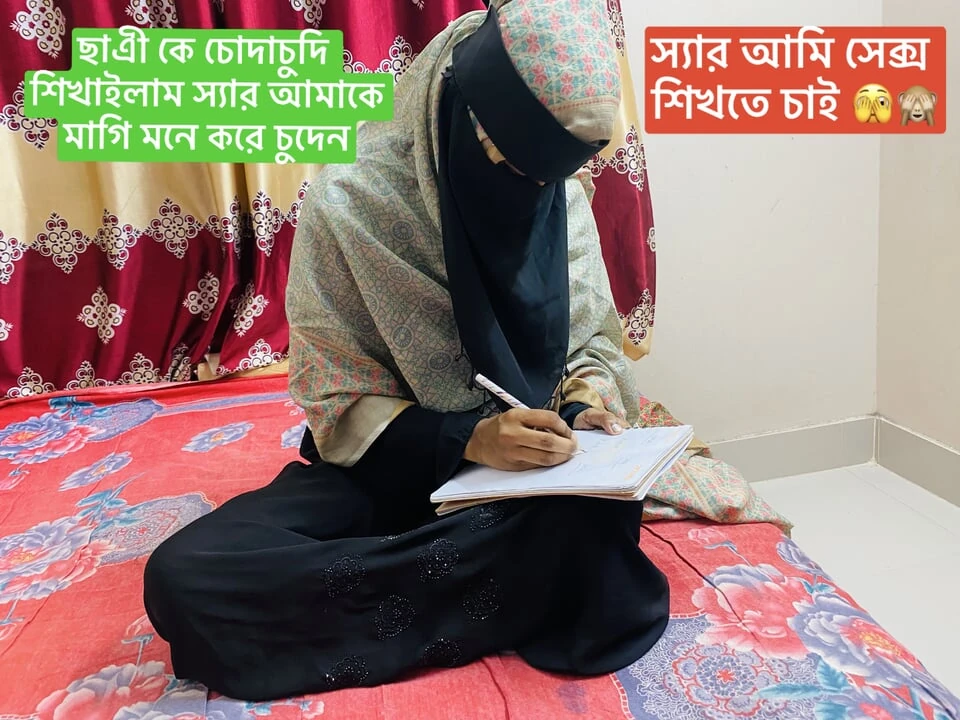 ছাএী কে চোদাচুদি
শিখাইলাম স্যার আমাকে
মাগি মনে করে চুদেন
স্যার আমি সেক্স
শিখতে চাই 🫣🙈